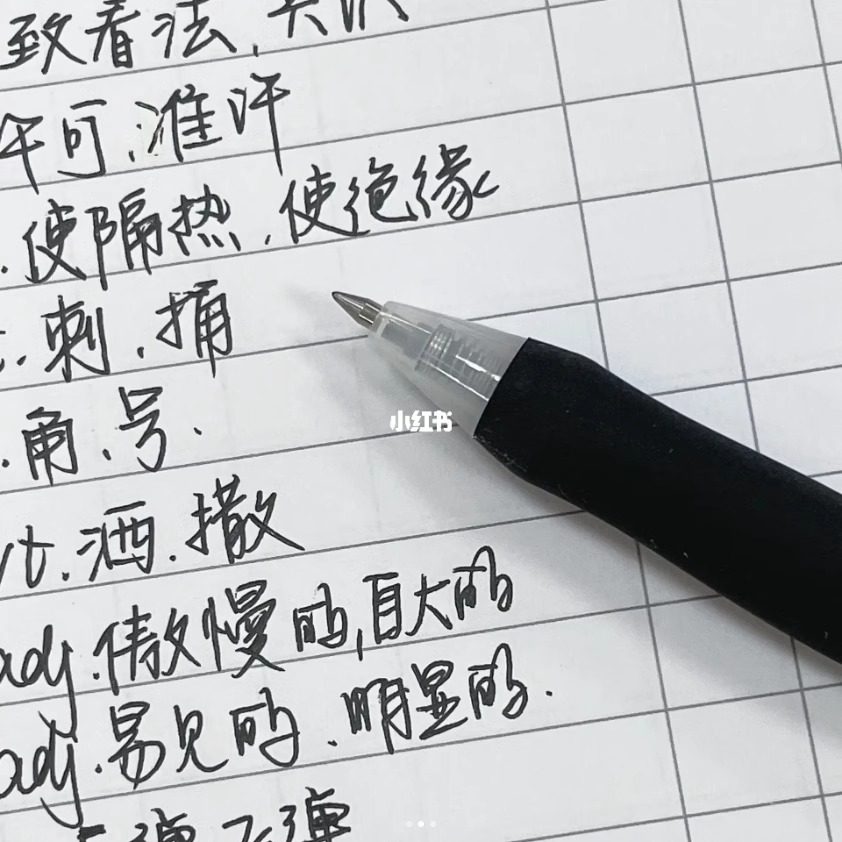 致看法,共识
许可,准许
.使隔热,使绝缘
.刺.捅
.角.号.
vt.洒.撒
小红书
adj.傲慢的,自大的
adj.易见的.明显的.